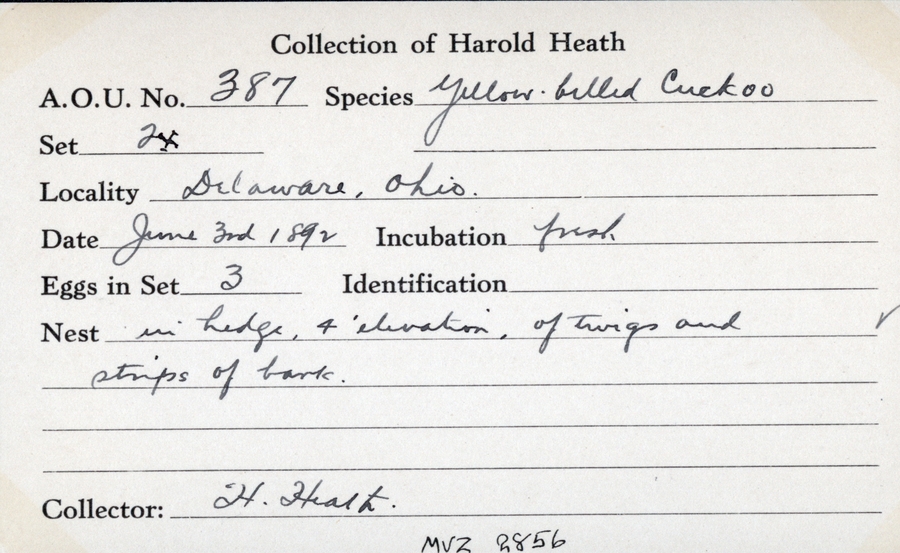 Collection of Harold Heath
A.O.U. No. 387 Species Yellow-billed Cuckoo
Set 2x
Locality Delaware, Ohio.
Date June 3rd 1892 Incubation fresh
Eggs in Set 3 Identification
Nest in hedge, 4' elevation, of twigs and
strips of bark.
Collector: H. Heath.
MVZ 2856